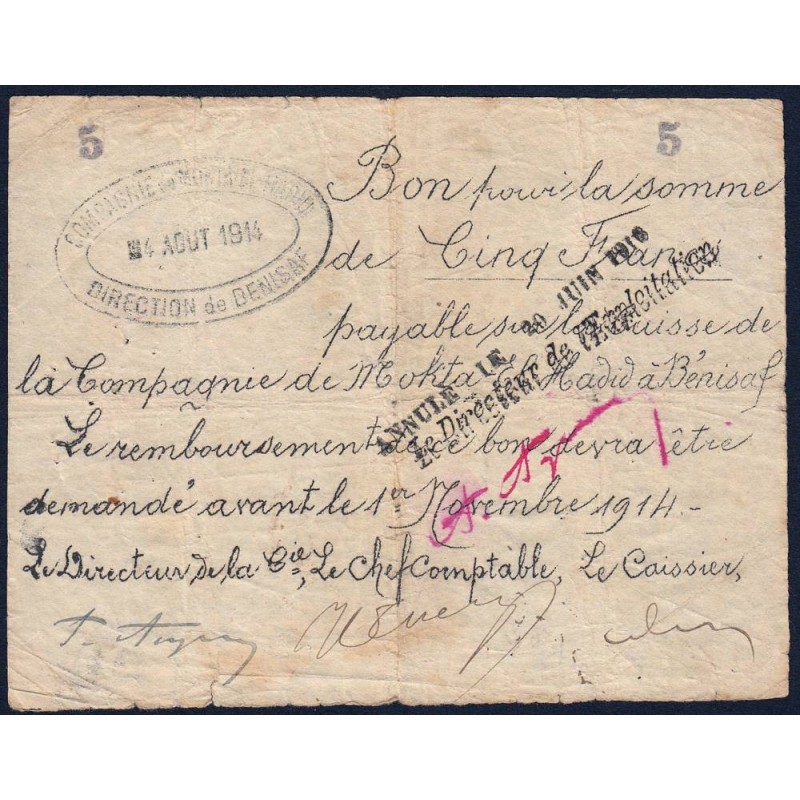 5
5
COMPAGNIE de MOKTA EL HADID
4 AOUT 1914
DIRECTION de BENISAF
Bon pour la somme
de Cinq Francs
payable sur la Caisse de
la Compagnie de Mokta El Hadid à Bénisaf
Le remboursement de ce bon devra être
demandé avant le 1er Novembre 1914.-
Le Directeur de la Cie, Le Chef Comptable, Le Caissier,
ANNULÉ LE 20 JUIN 1916
Le Directeur de l'Exploitation